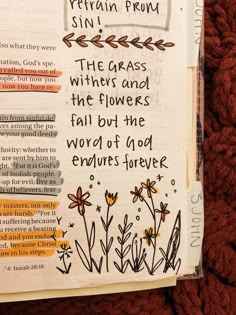 refrain from
SIN!
THE GRASS
withers and
the flowers
fall but the
word of God
endures forever
so what they were
nation, God's spe-
s called you out of
ople, but now you
now you have re-
from sinful de-
ves among the pa-
your good deeds
thority: whether
are sent by him
ght. For it is God's
of foolish people.
-up for evil; live as
of believers, fear
masters, not only
are harsh. For it
suffering because
receive a beating
and you endure
because Christ
Isaiah 28:16
JOHN